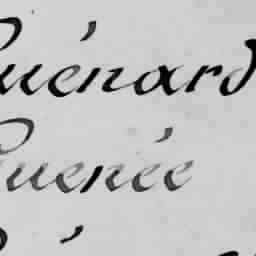 Guénard
Guenée